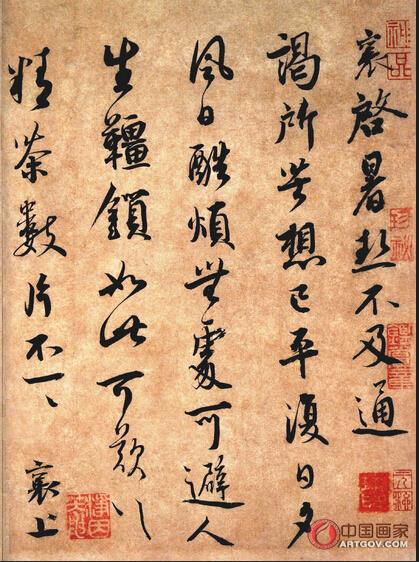 襄啓暑熱不及通
謁所苦想已平復日夕
風日酷煩無處可避人
生韁鎖如此可歎〻
精茶數片不一〻 襄上
神品
珍秘
中国画家
ARTGOV.COM